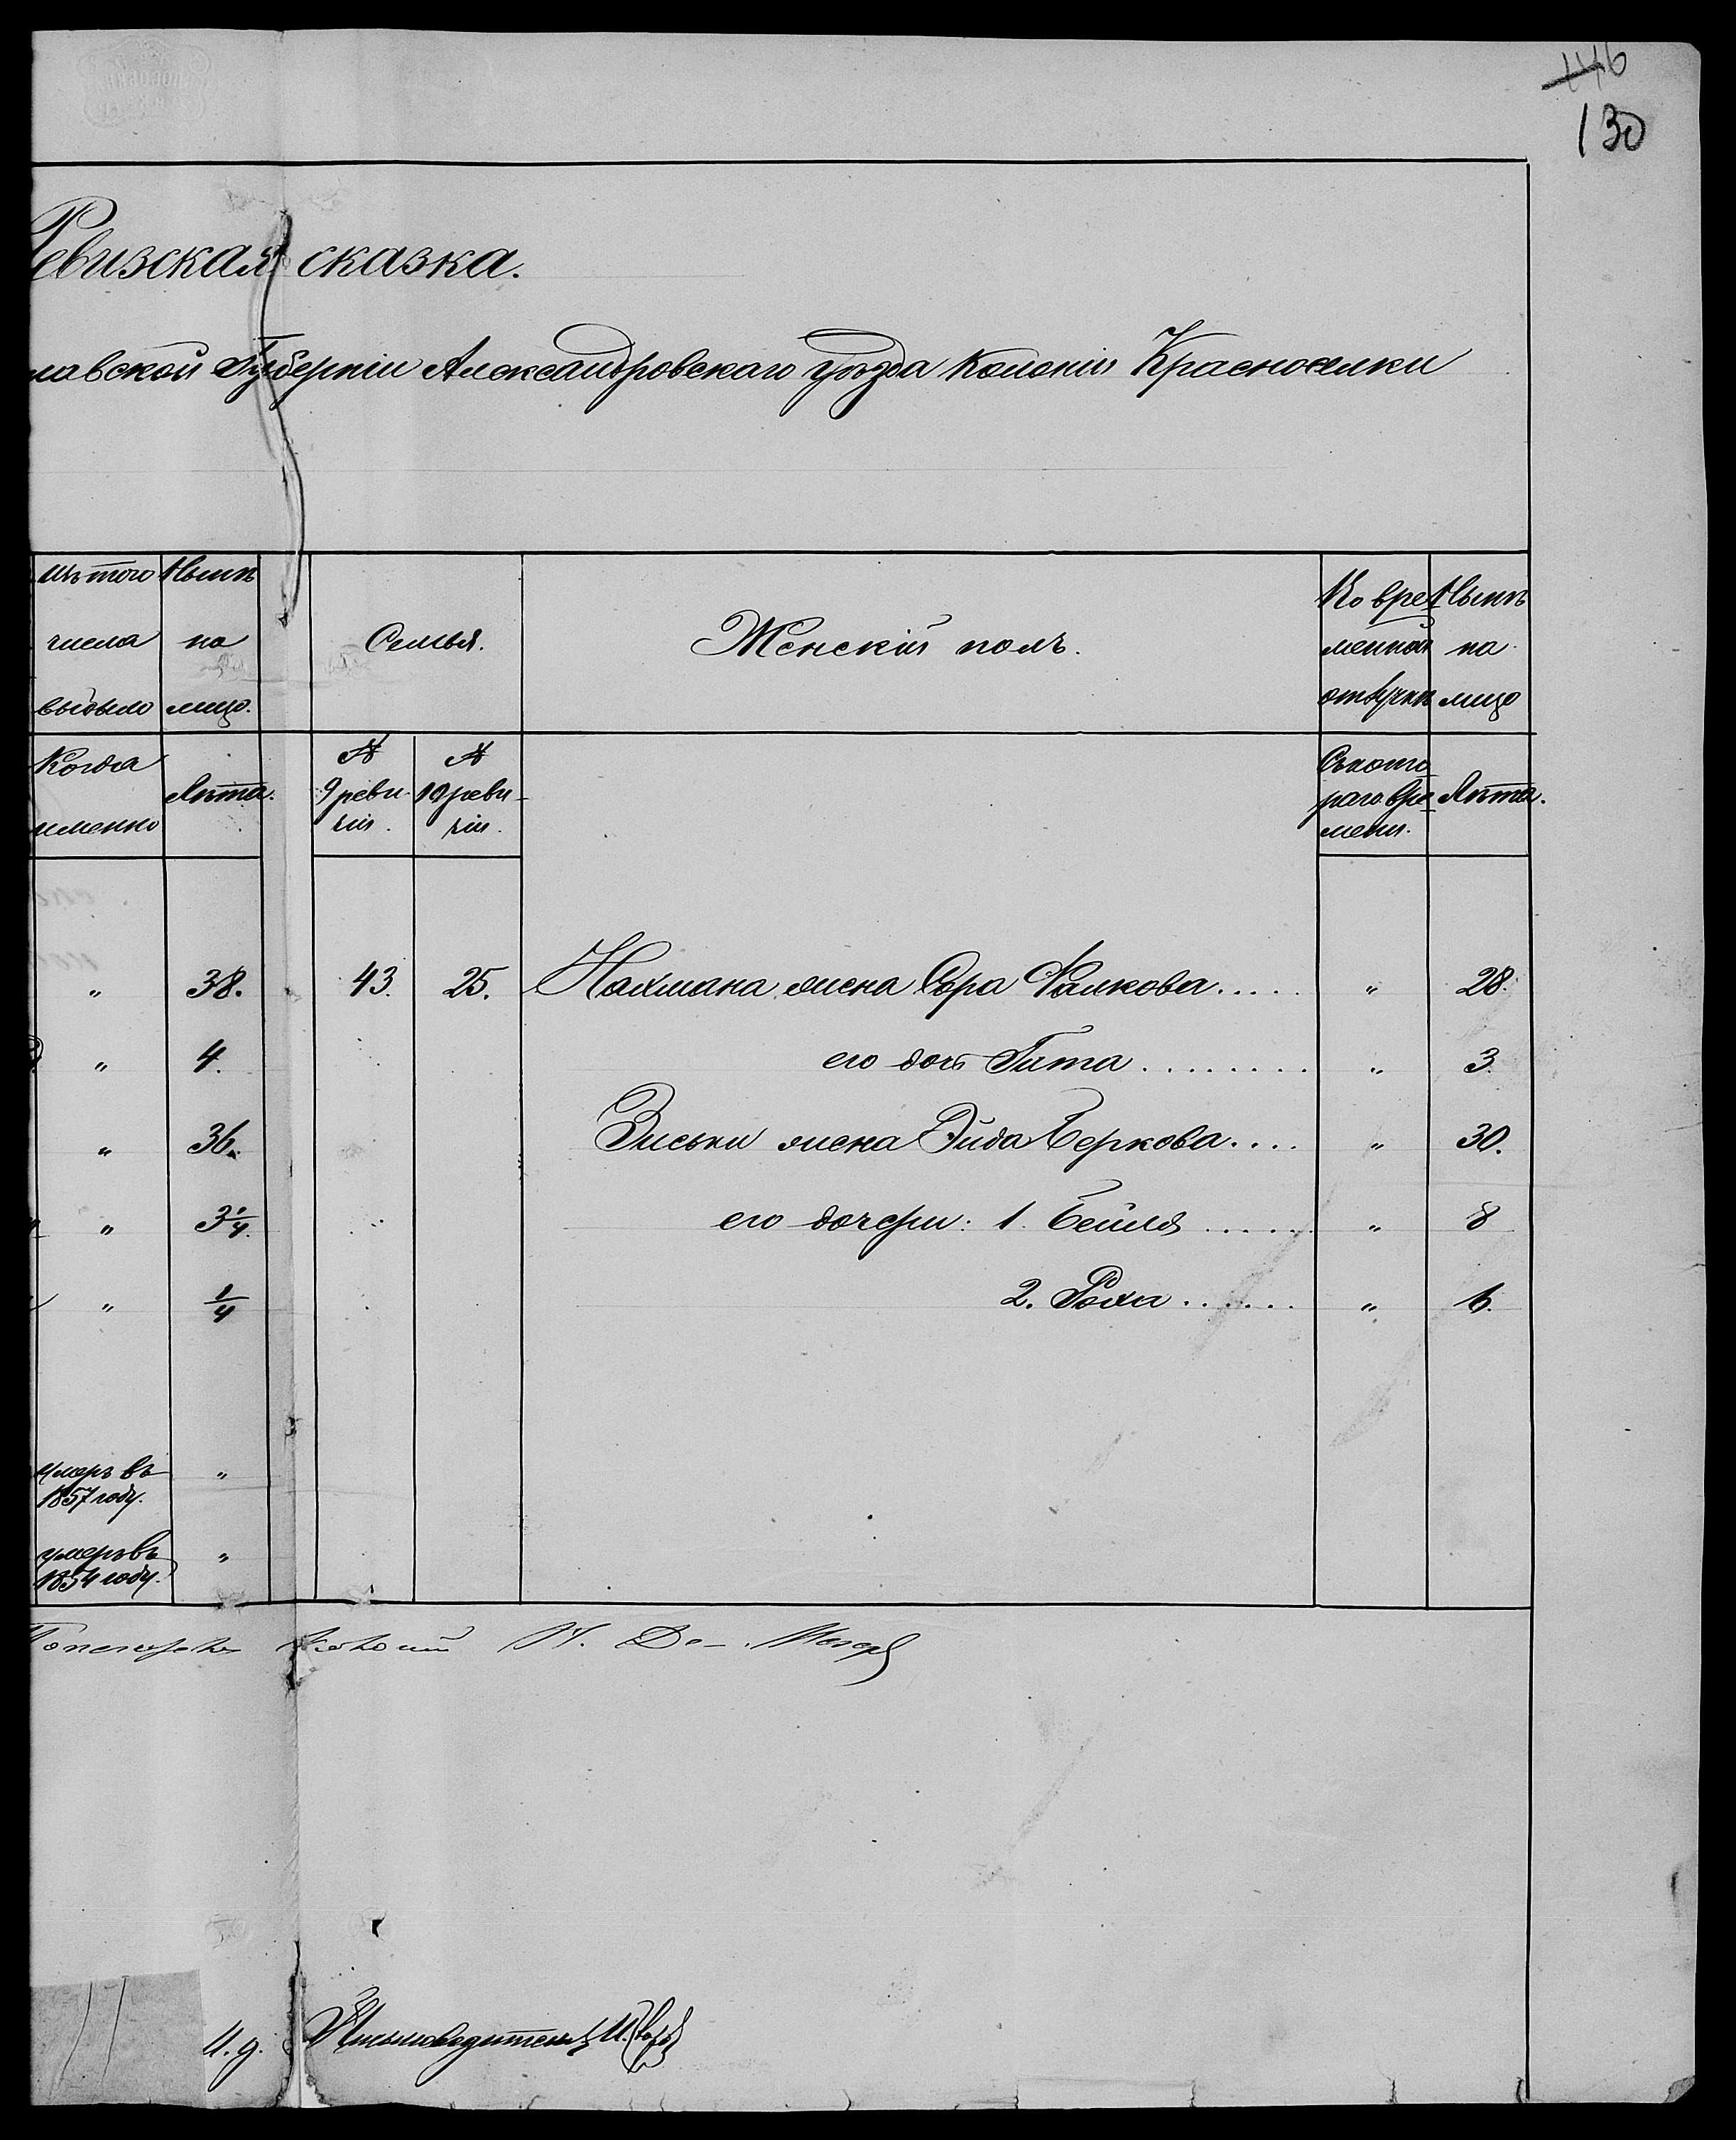 146
130
Ревизская сказка.
лавской Губерніи Александровскаго уѣзда колоніи Красноселки
Изъ того
числа
выбыло
Нынѣ
на
лицо.
Семья.
Женскій полъ.
Во вре-
менной
отлучкѣ
Нынѣ
на
лицо
Когда
именно
Лѣта.
№
9 реви-
зіи.
№
10 реви-
зіи.
Съ кото-
раго вре-
мени.
Лѣта.
" 38. 43. 25. Нахмана жена Сора Фалкова..... " 28.
" 4. его дочь Гита ........ " 3.
" 36. Зиськи жена Эйда Беркова.... " 30.
" 3 1/4. его дочери: 1. Бейля ...... " 8
" 1/4 2. Роха ...... " 6.
умеръ въ "
1857 году.
умеръ въ "
1854 году.
И. д. Письмоводителя